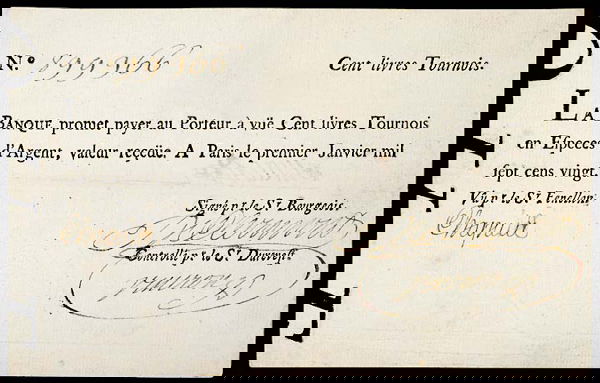 N.º Cent livres Tournois.
LA BANQUE promet payer au Porteur à vüe Cent livres Tournois
en Especes d'Argent, valeur reçeüe. A Paris le premier Janvier mil
sept cens vingt.
Signé p.r le S.r Bourgeois. Vû p.r le S.r Fenellon.
Controllé p.r le S.r Durevest.